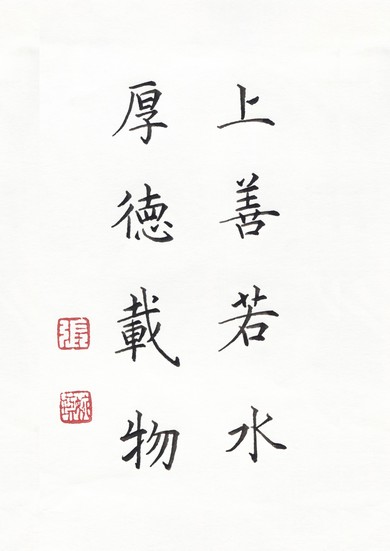 上善若水
厚德載物
張